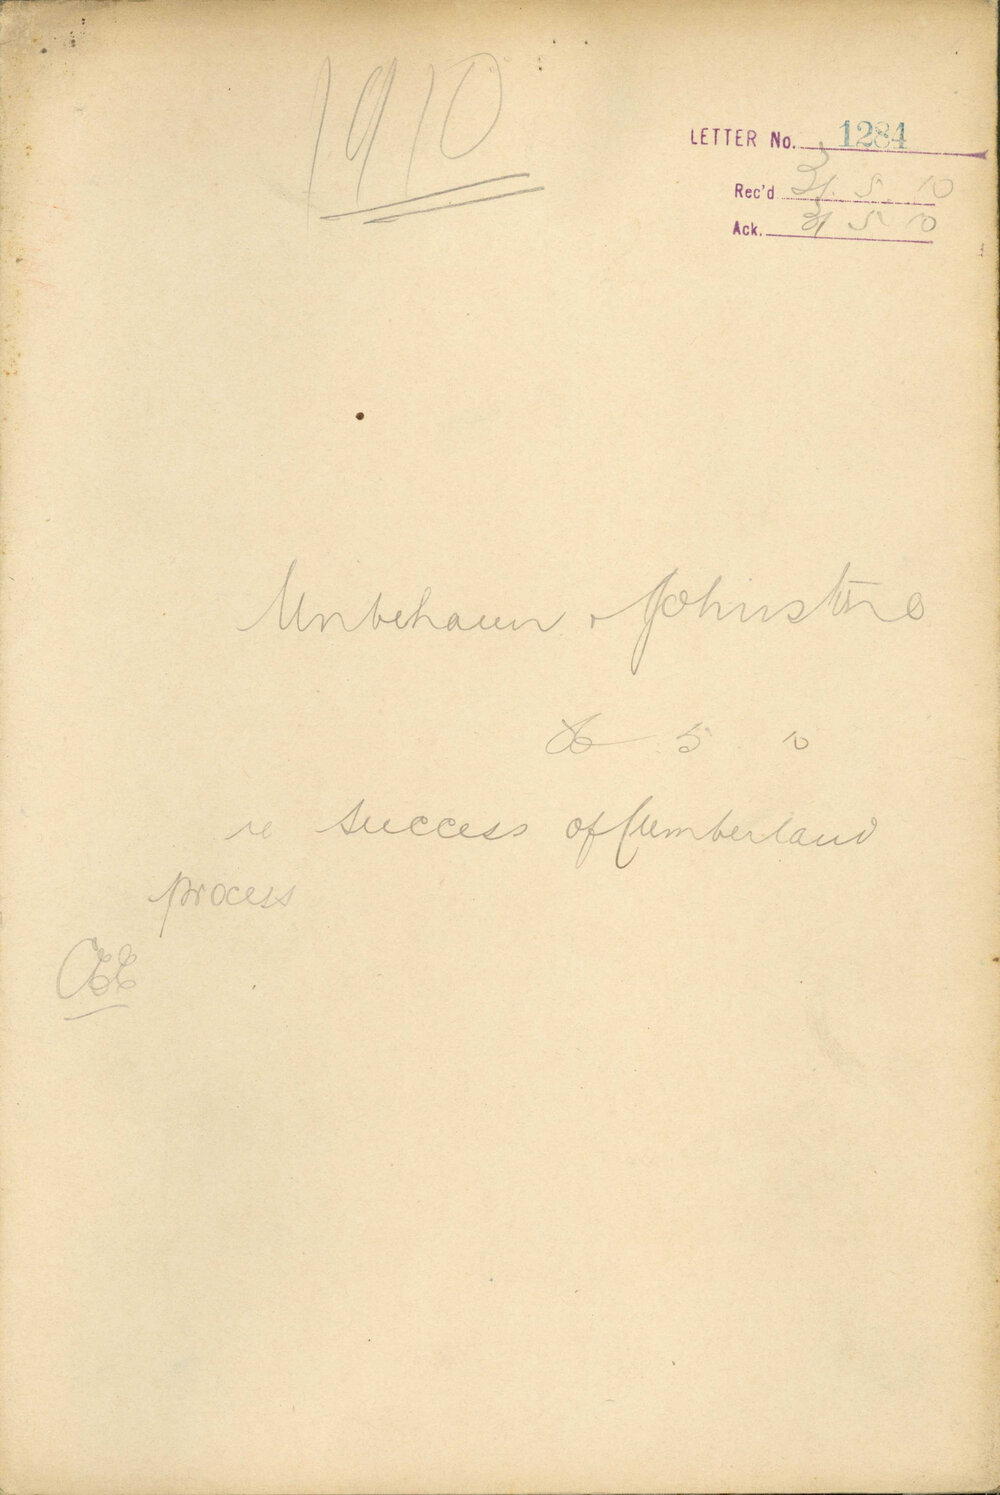 1910
LETTER No. 1284
Rec'd 31. 5. 10
Ack. 31 5 10
Unbehaun & Johnstone
5 10
re success of Cumberland
process